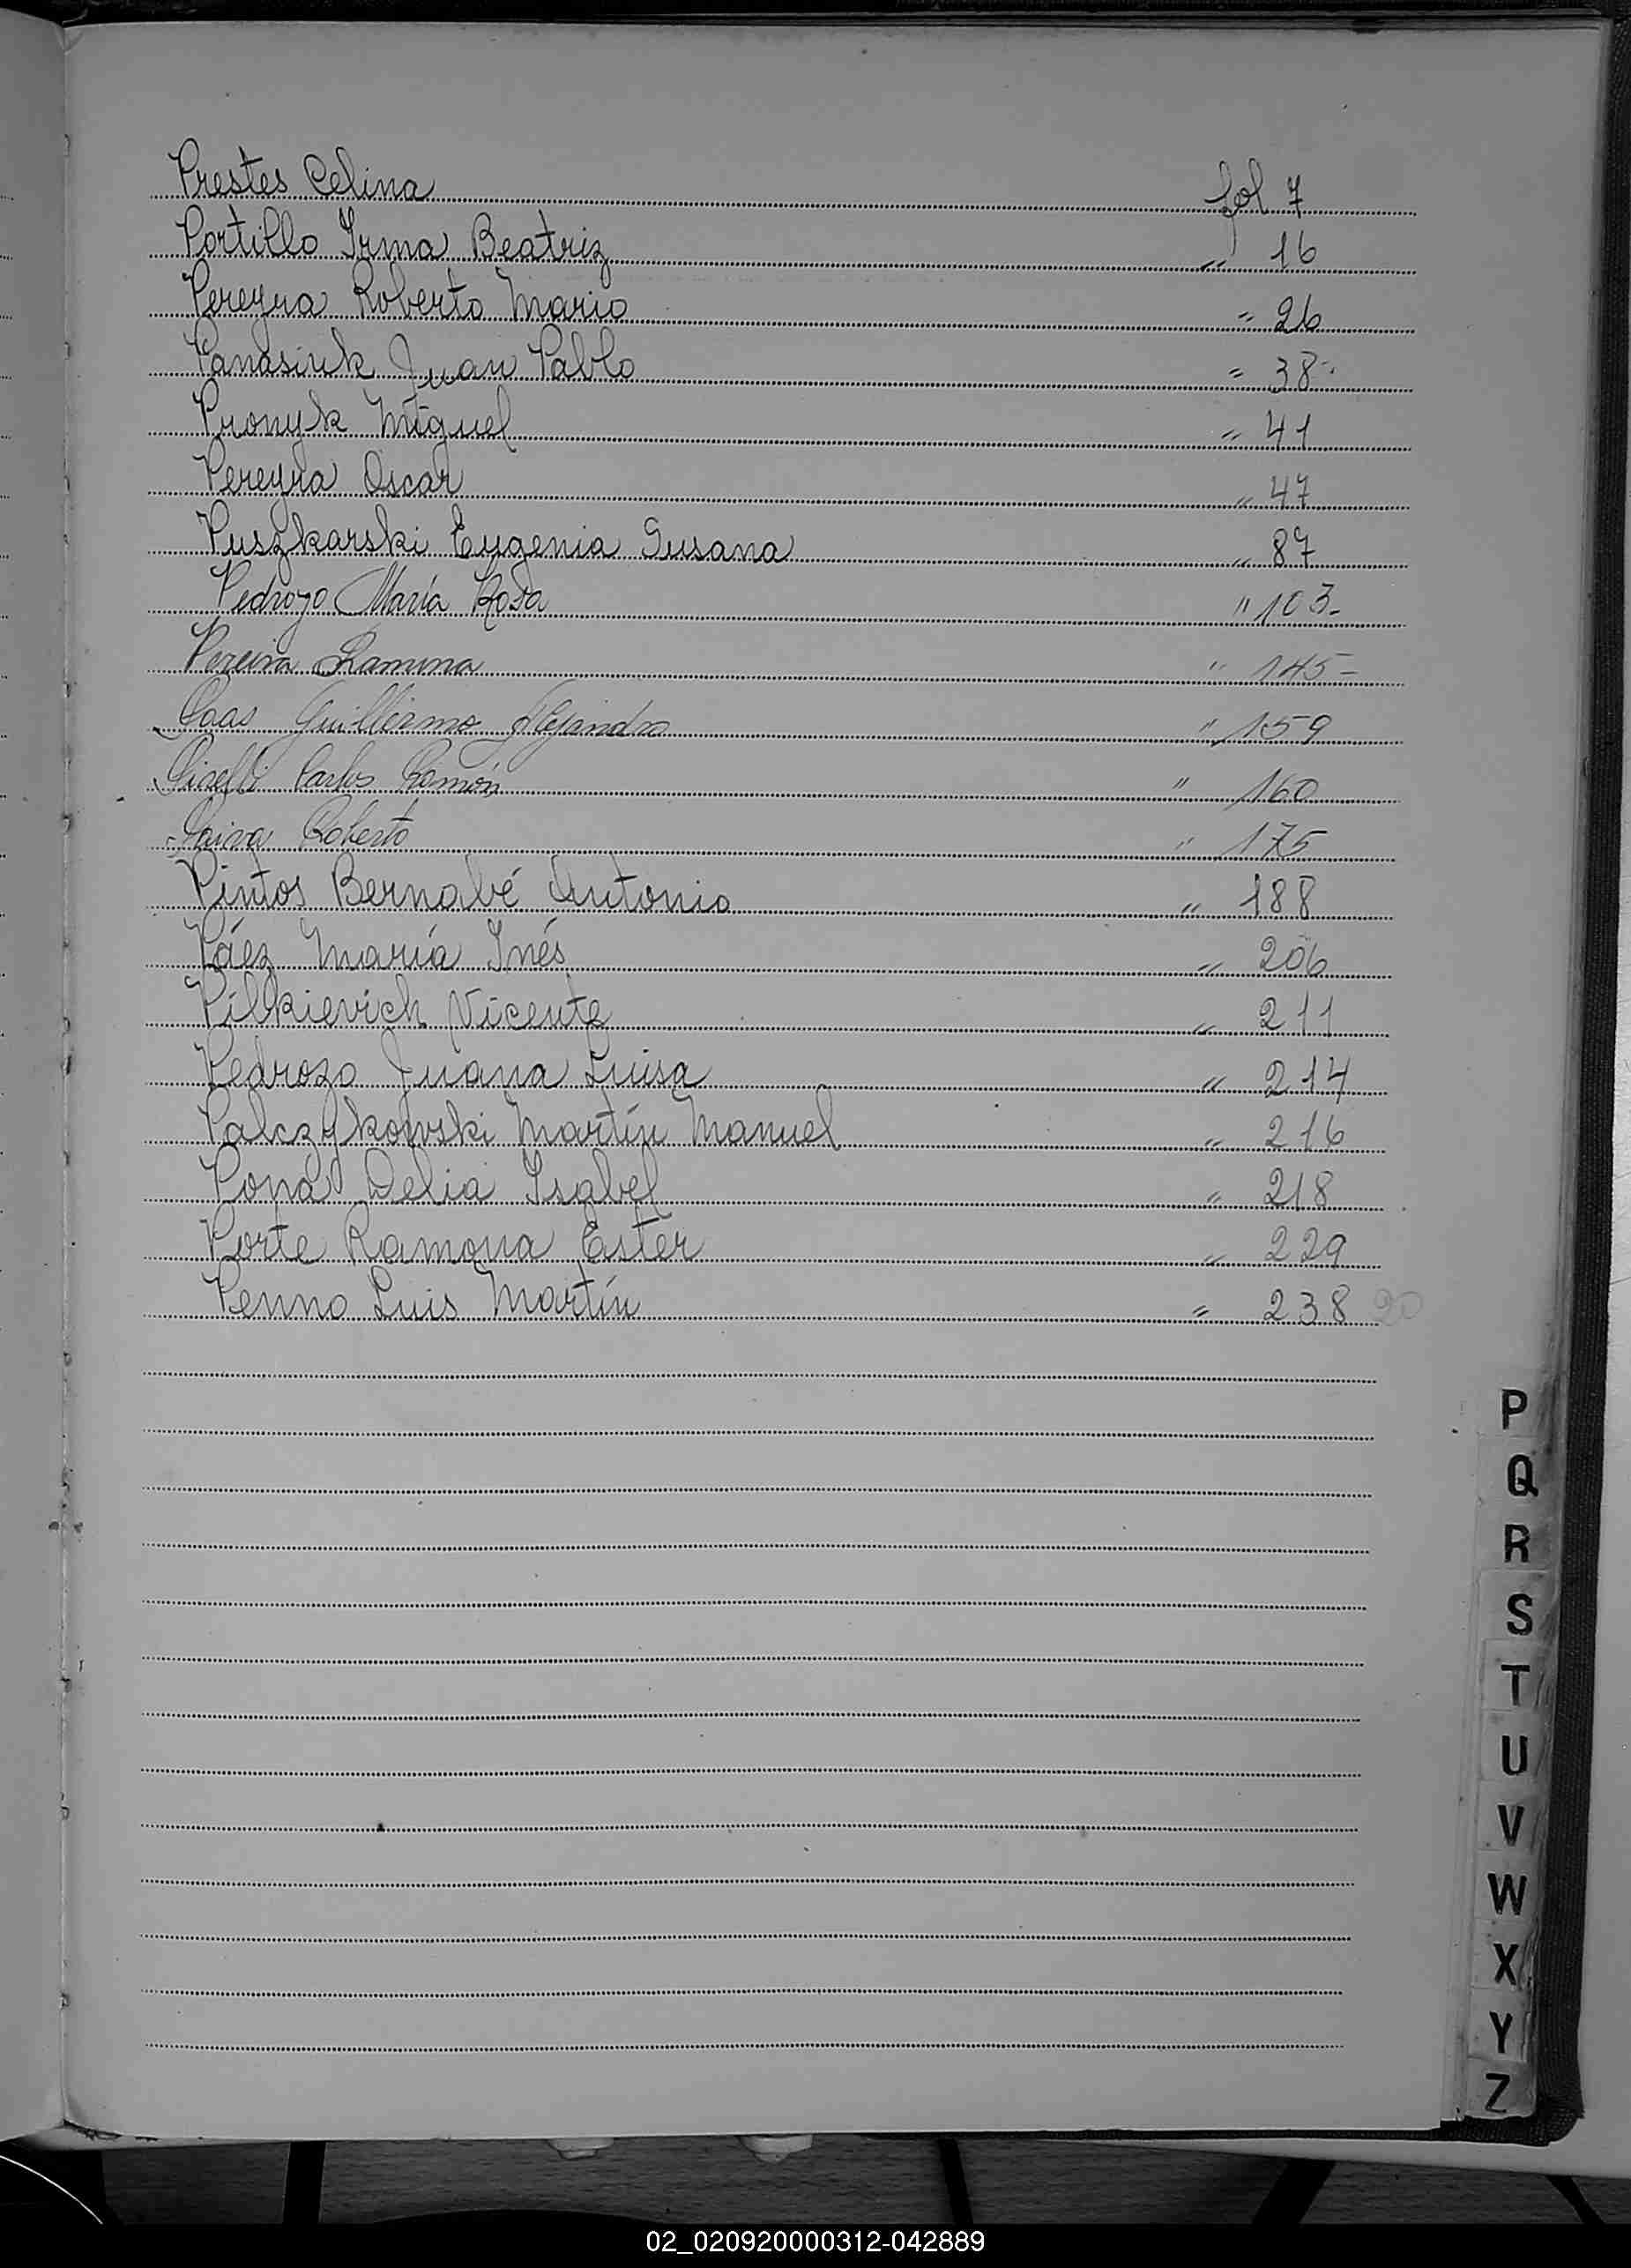 Prestes Celina fol 7
Portillo Irma Beatriz " 16
Pereyra Roberto Mario " 26
Panasiuk Juan Pablo " 38-
Pronyk Miguel " 41
Pereyra Oscar " 47
Puszkarski Eugenia Susana " 87
Pedrozo María Rosa " 103-
Pereira Ramona " 145-
Guillermo Alejandro " 159
Carlos Ramón " 160
Paiva Roberto " 175
Pintos Bernabé Antonio " 188
Páez María Inés " 206
Pilkievich Vicente " 211
Pedrozo Juana Luisa " 214
Palczykowski Martín Manuel " 216
Popa Delia Isabel " 218
Porte Ramona Ester " 229
Penno Luis Martín " 238 20
P
Q
R
S
T
U
V
W
X
Y
Z
02_020920000312-042889